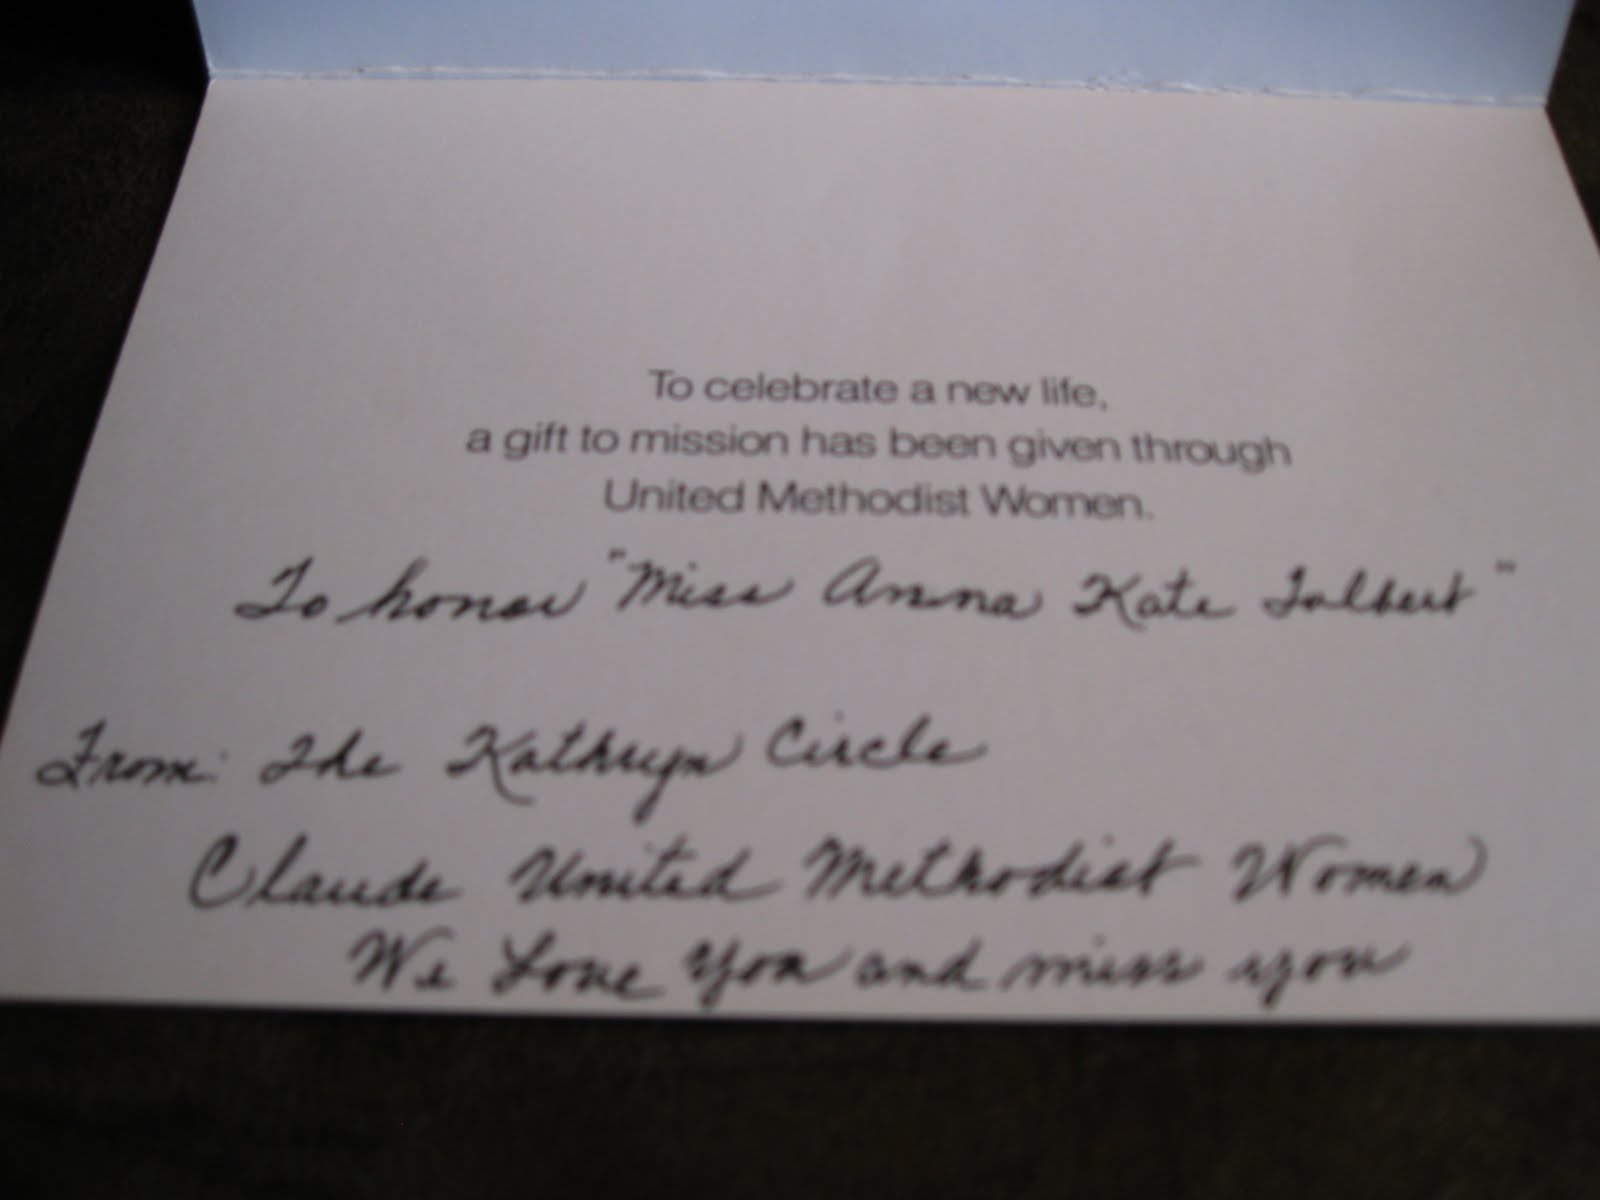 To celebrate a new life,
a gift to mission has been given through
United Methodist Women.
To honor "Miss Anna Kate Talbert"
From: The Kathryn Circle
Claude United Methodist Women
We Love You and miss you